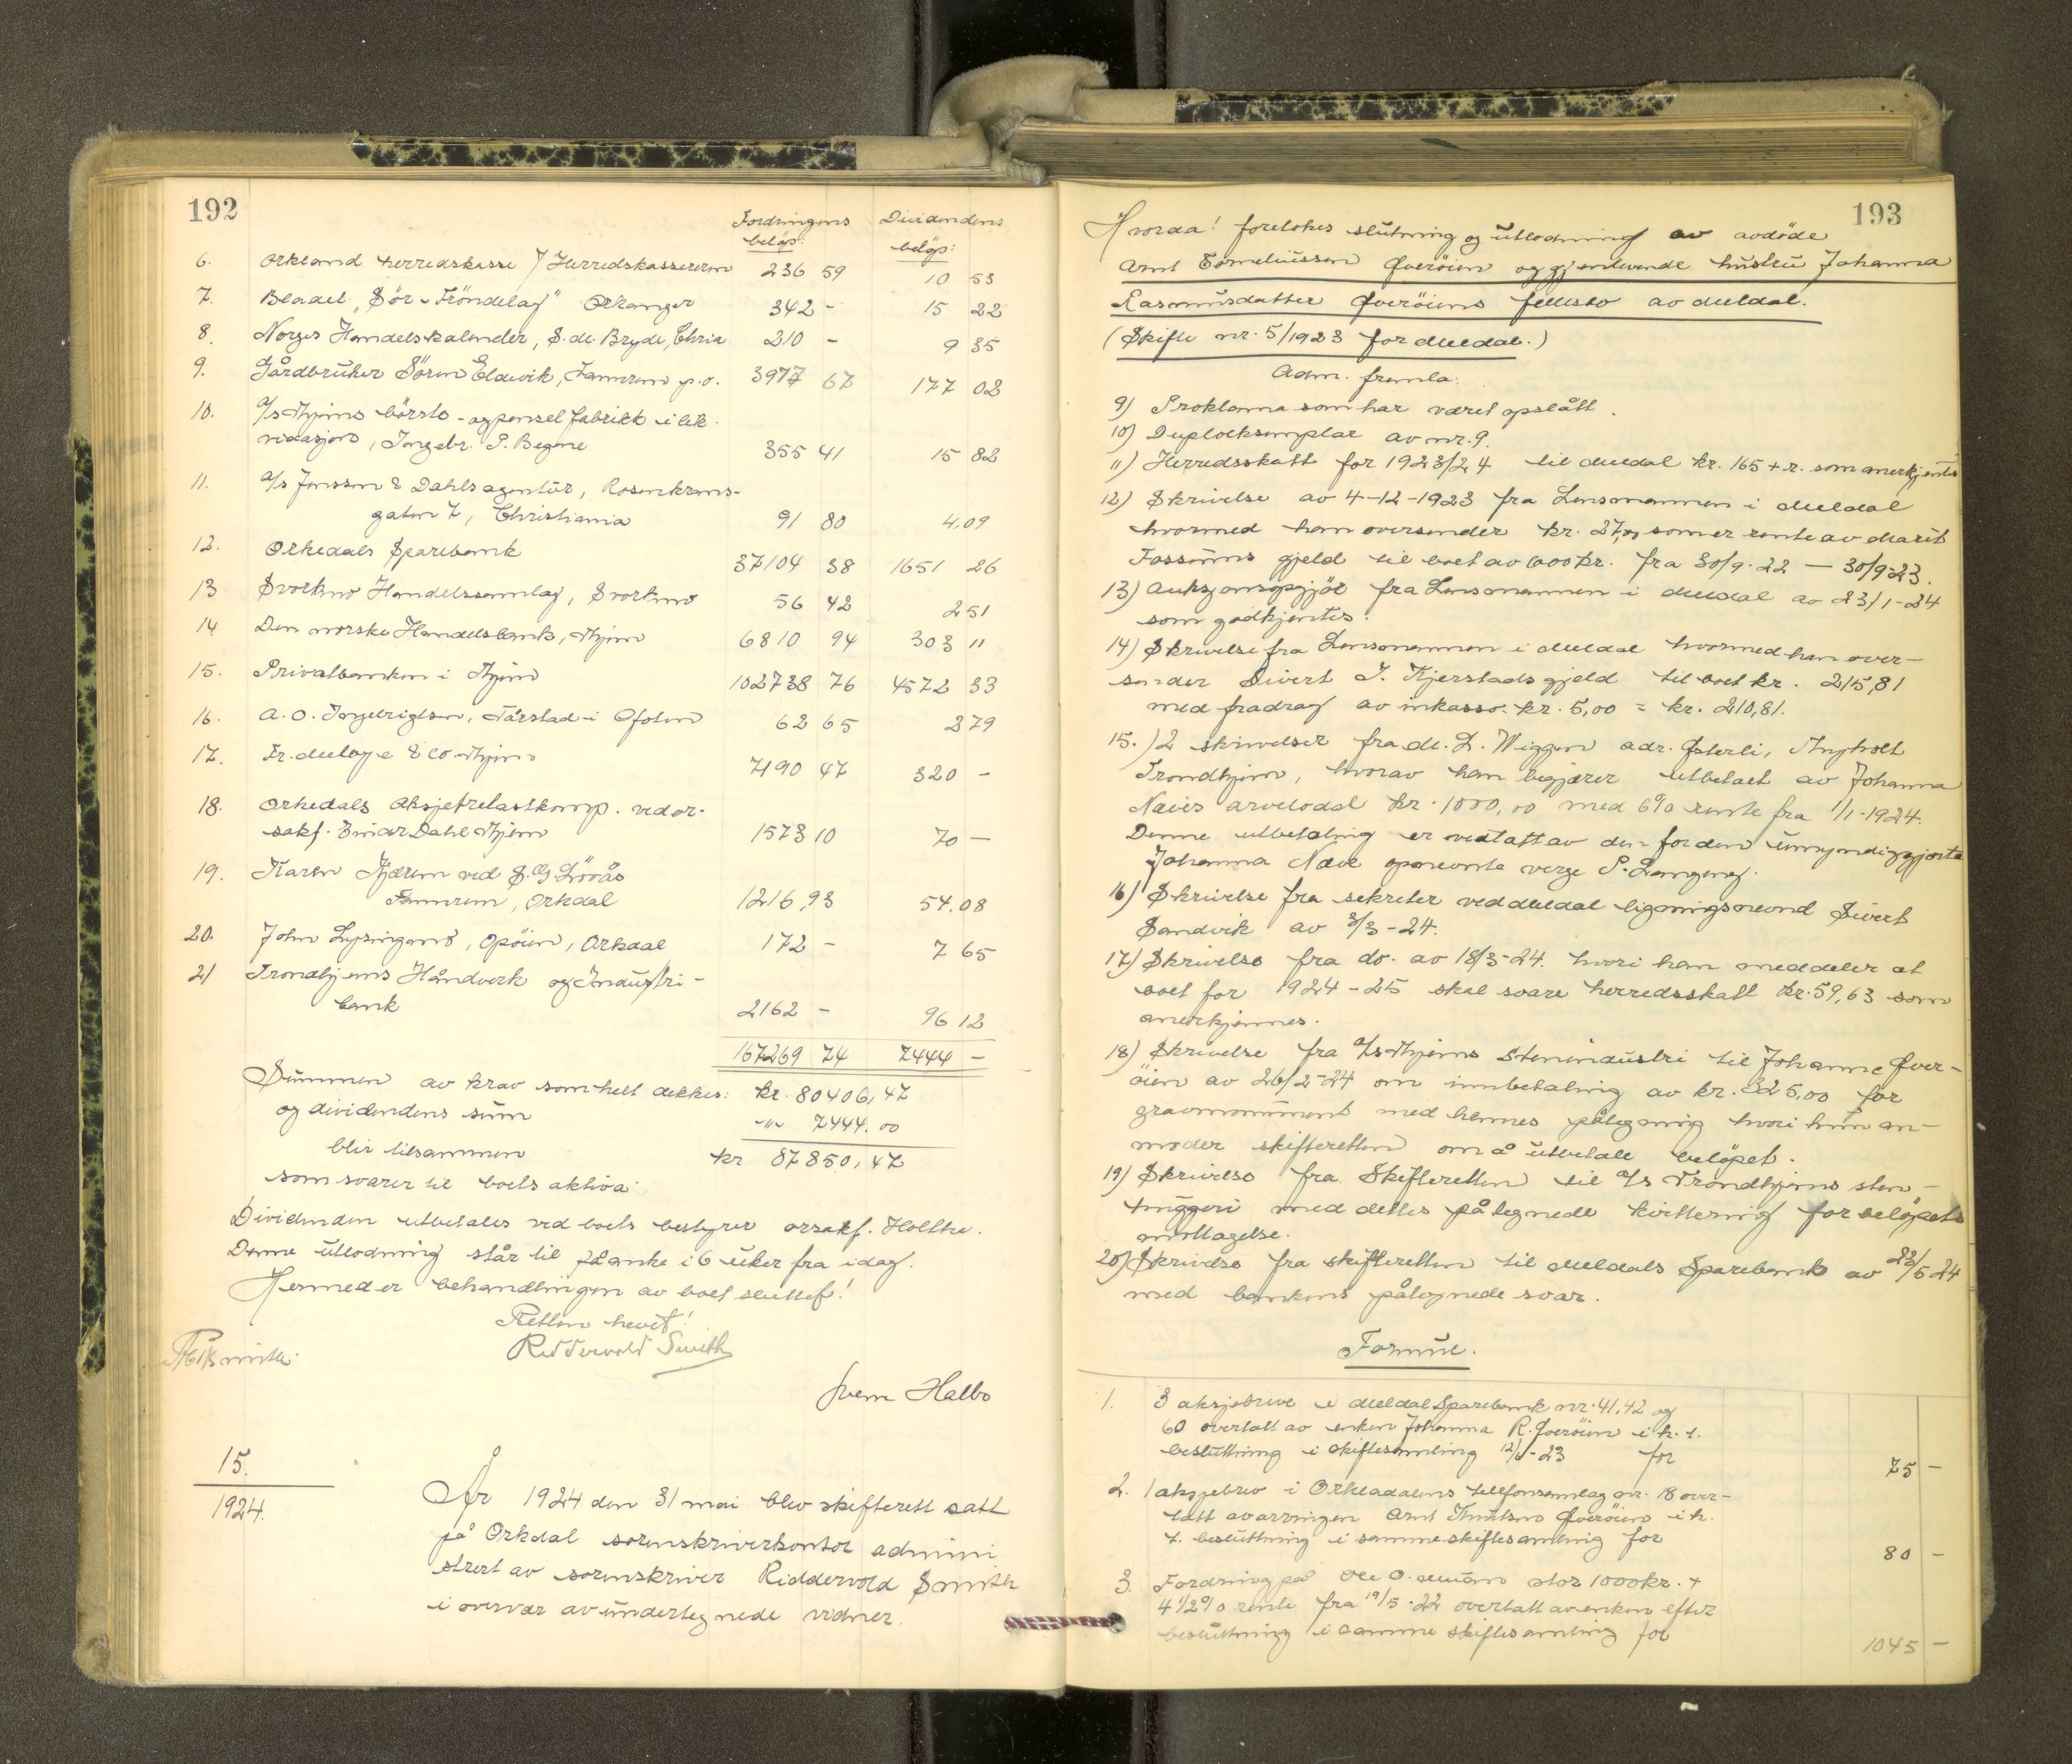 192
Fordringens Dividendens
beløp: beløp:
6. Orkland herredskasse / Herredskassereren 236 59 10 53
7. Bladet "Sör-Tröndelag" Orkanger 342 - 15 22
8. Norges Handelskalender, S. de Bryde, Chria 210 - 9 35
9. Gårdbruker Sören Eldevik, Fannrem p.o. 3977 67 177 02
10. A/s Thjems börste- og pensel fabrikk i lik-
vidasjon, Ingebr. P. Begne 355 41 15 82
11. A/s Jenssen & Dahls agentur, Rosenkrans-
gaten 7, Christiania 91 80 4,09
12. Orkedals Sparebank 37104 38 1651 26
13. Svorkmo Handelssamlag, Svorkmo 56 42 2 51
14. Den norske Handelsbank, Thjem 6810 94 303 "
15. Privatbanken i Thjem 102738 76 4572 33
16. A. O. Ingebrigtsen, Tårstad i Ofoten 62 65 2 79
17. Fr. & Co Thjem 7190 47 320 -
18. Orkedals Aksjetrelastkomp. ved or-
sakf. Einar Dahl Thjem 1573 10 70 -
19. Karen Kjærem ved S. G. Lövås
Fannrem, Orkdal 1216,93 54.08
20. John Lysingmo, Opöien, Orkdal 172 - 7 65
21 Trondhjems Håndverk og Industri-
bank 2162 - 96 12
167269 74 7444 -
Summen av krav som helt dekkes: kr. 80406,47
og dividendens sum -"- 7444.00
blir tilsammen kr 87850,47
som svarer til boets aktiva.
Dividenden utbetales ved boets bestyrer orsakf. Holtke.
Denne utlodning står til påanke i 6 uker fra idag.
Hermed er behandlingen av boet sluttet!
Retten hevet!
Ridderwold Smith
Svein Halbo
15.
1924.
År 1924 den 31 mai blev skifterett satt
på Orkdal sorenskriverkontor admini
strert av sorenskriver Riddervold Smith
i overvær av undertegnede vidner.
193
Hvorda! foretokes slutning og utlodning av avdöde
Arnt Corneliussen Överöien og gjenlevende hustru Johanna
Rasmusdatter Överöiens fellesbo av Meldal.
(Skifte nr. 5/1923 for Meldal.)
Adm. fremla:
9) Proklama som har været opslått.
10) Duploeksemplar av nr. 9.
11) Herredsskatt for 1923/24 til Meldal kr. 165 + r. som anerkjentes
12) Skrivelse av 4-12-1923 fra Lensmannen i Meldal
hvormed han oversender kr. 27,00 som er rente av Marit
Fossums gjeld til boet av 600 kr. fra 30/9-22 — 30/9-23.
13) Auksjonsopgjör fra Lensmannen i Meldal av 23/1-24
som godkjentes.
14) Skrivelse fra Lensmannen i Meldal hvormed han over-
sender Sivert J. Kjerstads gjeld til boet kr. 215,81
med fradrag av inkasso. kr. 5,00 = kr. 210,81.
15.) 2 skrivelser fra M. L. Wiggen adr. Österli, Thyholt
Trondhjem, hvorav han begjærer utbetalt av Johanna
Næves arvelodd kr. 1000,00 med 6% rente fra 1/1-1924.
Denne utbetaling er vedtatt av den for den umyndiggjorte
Johanna Næve opnevnte verge P. Langeng.
16) Skrivelse fra sekretær ved Meldal ligningsnevnd Sivert
Sandvik av 3/3-24.
17) Skrivelse fra do. av 18/3-24. hvori han meddeler at
boet for 1924-25 skal svare herredsskatt kr. 59,63 som
anerkjennes.
18) Skrivelse fra A/s Thjems Stenindustri til Johanne Över-
öien av 26/2-24 om innbetaling av kr. 325,00 for
gravmonument med hennes påtegning hvori hun an-
moder skifteretten om å utbetale beløpet.
19) Skrivelse fra Skifteretten til A/s Trondhjems sten-
huggeri med dettes påtegnede kvittering for beløpets
mottagelse.
20) Skrivelse fra skifteretten til Meldals Sparebank av 23/5-24
med bankens påtegnede svar.
Formue.
1. 3 aksjebreve i Meldal Sparebank nr. 41, 42 og
60 overtatt av enken Johanna R. Överöien i h. t.
beslutning i skiftesamling 12/6-23 for 75 -
2. 1 aksjebrev i Orkladalens telefonsamlag nr. 18 over-
tatt av arvingen Arnt Knutsen Överöien i h.
t. beslutning i samme skiftesamling for 80 -
3. Fordring på Ole O. Muan stor 1000 kr. +
4 1/2 % rente fra 19/5-22 overtatt av enken efter
beslutning i samme skiftesamling for 1045 -